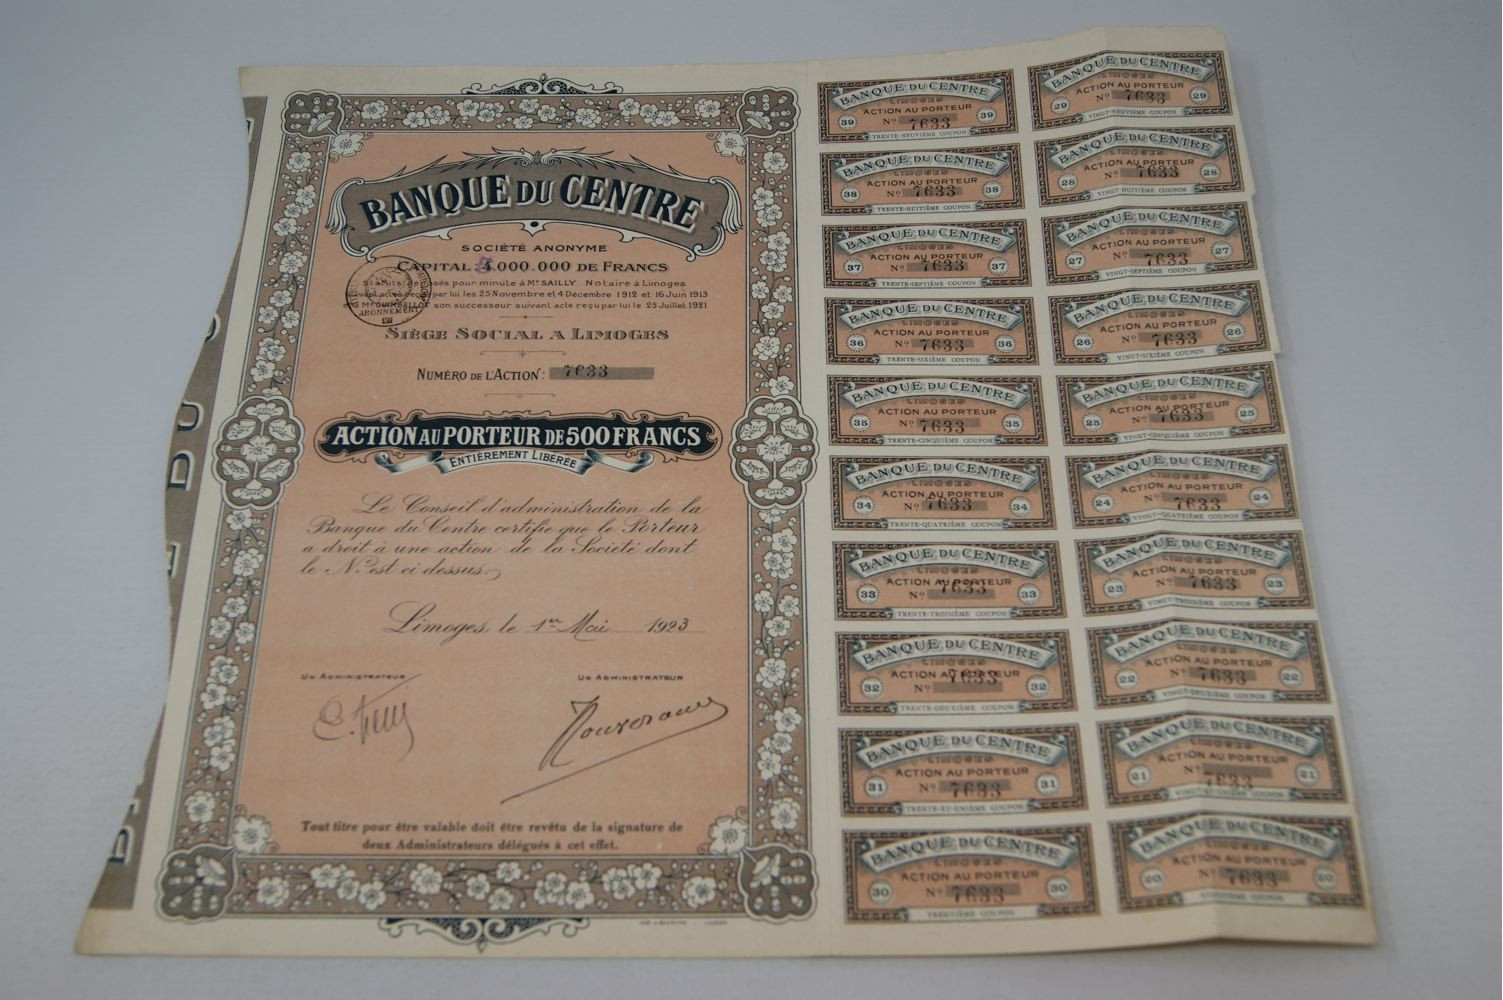 BANQUE DU CENTRE
SOCIÉTÉ ANONYME
CAPITAL : .000.000 DE FRANCS
Statuts déposés pour minute à Me SAILLY. Notaire à Limoges
suivant actes reçus par lui les 25 Novembre et 4 Décembre 1912 et 16 Juin 1913
son successeur suivant acte reçu par lui le 25 Juillet 1921
ABONNEMENT
SIÈGE SOCIAL A LIMOGES
NUMÉRO DE L'ACTION : 7633
ACTION AU PORTEUR DE 500 FRANCS
ENTIÈREMENT LIBÉRÉE
Le Conseil d'administration de la
Banque du Centre certifie que le Porteur
a droit à une action de la Société dont
le No. est ci dessus
Limoges, le 1er Mai 1923
UN ADMINISTRATEUR
UN ADMINISTRATEUR
Tout titre pour être valable doit être revêtu de la signature de
deux Administrateurs délégués à cet effet.
DU
BANQUE DU CENTRE
LIMOGES
ACTION AU PORTEUR
39 No 7633 39
TRENTE-NEUVIÈME COUPON
BANQUE DU CENTRE
LIMOGES
ACTION AU PORTEUR
29 No 7633 29
VINGT-NEUVIÈME COUPON
BANQUE DU CENTRE
LIMOGES
ACTION AU PORTEUR
38 No 7633 38
TRENTE-HUITIÈME COUPON
BANQUE DU CENTRE
LIMOGES
ACTION AU PORTEUR
28 No 7633 28
VINGT-HUITIÈME COUPON
BANQUE DU CENTRE
LIMOGES
ACTION AU PORTEUR
37 No 7633 37
TRENTE-SEPTIÈME COUPON
BANQUE DU CENTRE
LIMOGES
ACTION AU PORTEUR
27 No 7633 27
VINGT-SEPTIÈME COUPON
BANQUE DU CENTRE
LIMOGES
ACTION AU PORTEUR
36 No 7633 36
TRENTE-SIXIÈME COUPON
BANQUE DU CENTRE
LIMOGES
ACTION AU PORTEUR
26 No 7633 26
VINGT-SIXIÈME COUPON
BANQUE DU CENTRE
LIMOGES
ACTION AU PORTEUR
35 No 7633 35
TRENTE-CINQUIÈME COUPON
BANQUE DU CENTRE
LIMOGES
ACTION AU PORTEUR
25 No 7633 25
VINGT-CINQUIÈME COUPON
BANQUE DU CENTRE
LIMOGES
ACTION AU PORTEUR
34 No 7633 34
TRENTE-QUATRIÈME COUPON
BANQUE DU CENTRE
LIMOGES
ACTION AU PORTEUR
24 No 7633 24
VINGT-QUATRIÈME COUPON
BANQUE DU CENTRE
LIMOGES
ACTION AU PORTEUR
33 No 7633 33
TRENTE-TROISIÈME COUPON
BANQUE DU CENTRE
LIMOGES
ACTION AU PORTEUR
23 No 7633 23
VINGT-TROISIÈME COUPON
BANQUE DU CENTRE
LIMOGES
ACTION AU PORTEUR
32 No 7633 32
TRENTE-DEUXIÈME COUPON
BANQUE DU CENTRE
LIMOGES
ACTION AU PORTEUR
22 No 7633 22
VINGT-DEUXIÈME COUPON
BANQUE DU CENTRE
LIMOGES
ACTION AU PORTEUR
31 No 7633 31
TRENTE-ET-UNIÈME COUPON
BANQUE DU CENTRE
LIMOGES
ACTION AU PORTEUR
21 No 7633 21
VINGT-ET-UNIÈME COUPON
BANQUE DU CENTRE
LIMOGES
ACTION AU PORTEUR
30 No 7633 30
TRENTIÈME COUPON
BANQUE DU CENTRE
LIMOGES
ACTION AU PORTEUR
20 No 7633 20
VINGTIÈME COUPON